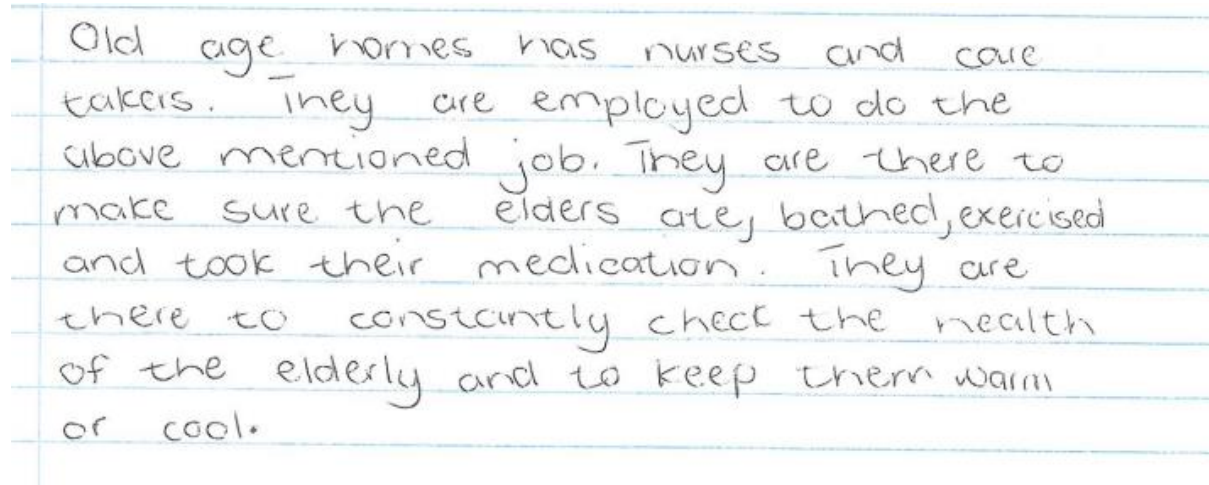 Old age homes has nurses and care
takers. They are employed to do the
above mentioned job. They are there to
make sure the elders ate, bathed, exercised
and took their medication. They are
there to constantly check the health
of the elderly and to keep them warm
or cool.